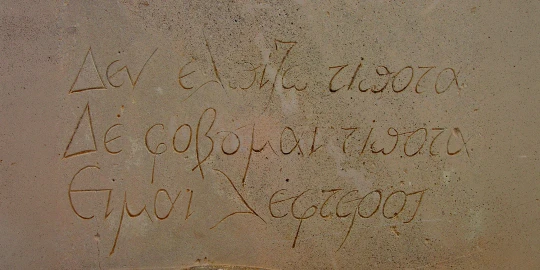 Δεν ελπίζω τίποτα
Δέ φοβομαι τίποτα
Ειμαι λέφτερος